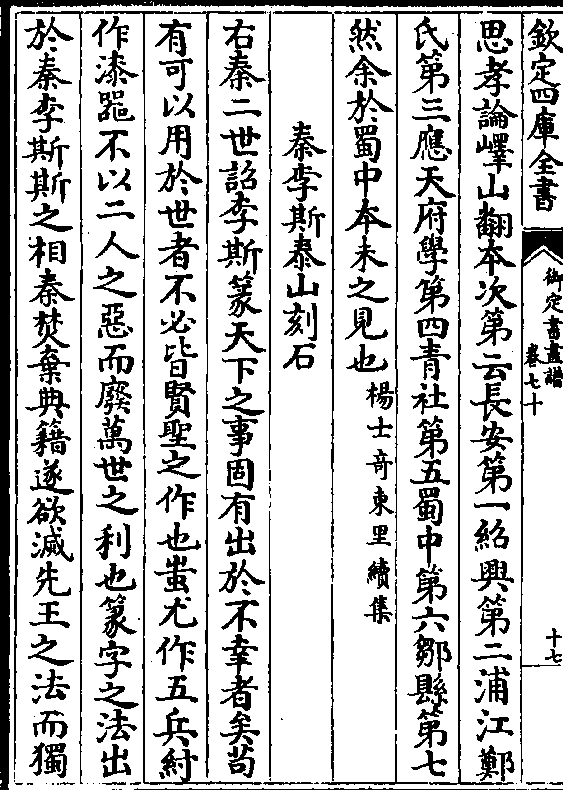 欽定四庫全書
御定書畫譜
卷七十
十七
思孝論嶧山翻本次第云長安第一紹興第二浦江鄭
氏第三應天府學第四青社第五蜀中第六鄒縣第七
然余於蜀中本未之見也楊士竒東里續集
秦李斯泰山刻石
右秦二世詔李斯篆天下之事固有出於不幸者矣苟
有可以用於世者不必皆賢聖之作也蚩尤作五兵紂
作漆器不以二人之惡而廢萬世之利也篆字之法出
於秦李斯斯之相秦焚棄典籍遂欲滅先王之法而獨